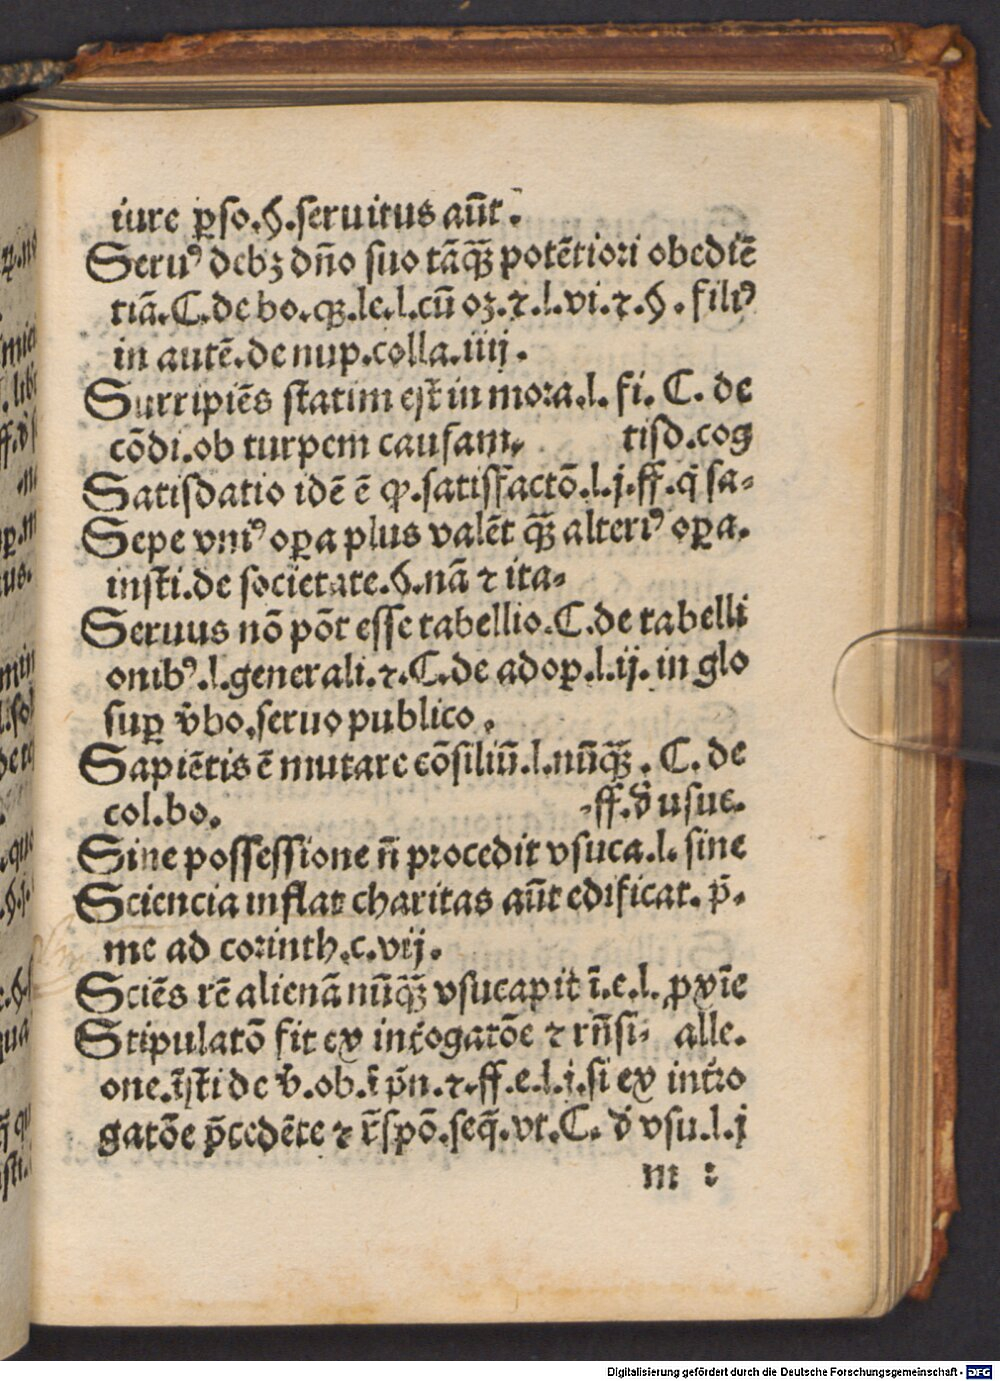 iure ꝑso.§.seruitus aūt.
Seruꝰ debꝫ dn̄o suo tāꝙ̄ potētiori obediē
tiā.C.de bo.q̄.le.l.cū oꝫ.⁊.l.vi.⁊.§. filiꝰ
in autē.de nup.colla.iiij.
Surripiēs statim est in mora.l. fi. C. de
cōdi.ob turpem causam. tisd.cog
Satisdatio idē ē ꝙ.satisfactō.l.j.ff.q̇ sa-
Sepe vniꝰ oꝑa plus valēt ꝙ̄ alteriꝰ oꝑa.
insti.de societate.§.nā ⁊ ita-
Seruus nō pōt esse tabellio.C.de tabelli
onibꝰ.l.generali.⁊.C.de adoꝑ.l.ij. in glo
suꝑ v̄bo.seruo publico.
Sapiētis ē mutare cōsiliū.l.nūꝙ̄. C. de
col.bo. -ff.d̄ usuc.
Sine possessione n̄ procedit vsuca.l. sine
Sciencia inflat charitas aūt edificat. p̄.
me ad corinth.c.vij.
Sciēs rē alienā nūꝙ̄ vsucapit ī.e.l. ꝓxīe
Stipulatō fit ex int̄ogatōe ⁊ rn̄si- alle.
one.īsti de v̄.ob.ī pn̄.⁊.ff.e.l.j.si ex int̄ro
gatōe p̄cedēte ⁊ r̄spō.seq̄.vt.C. d̄ vsu.l.j
m :
Digitalisierung gefördert durch die Deutsche Forschungsgemeinschaft - DFG